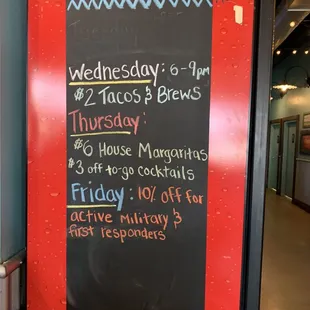 Wednesday: 6-9pm
$2 Tacos & Brews
Thursday:
$6 House Margaritas
$3 off to-go cocktails
Friday: 10% off for
active Military &
first responders